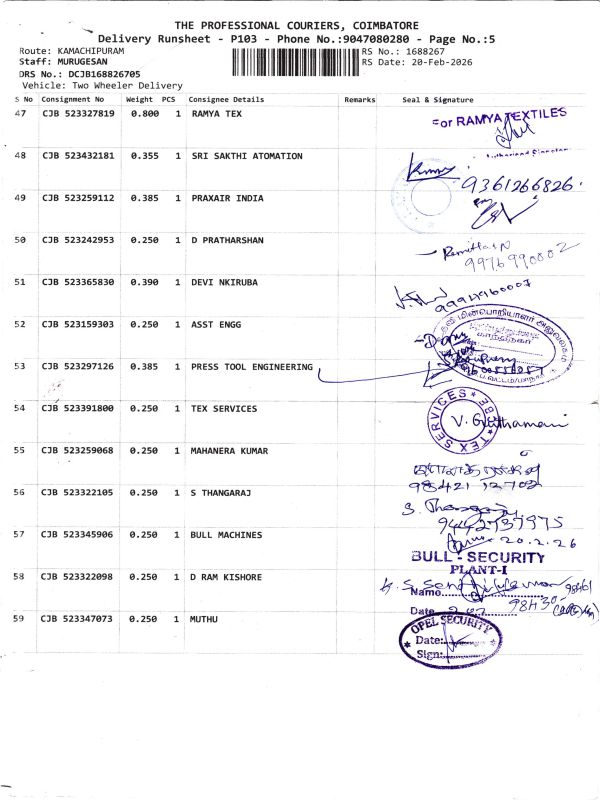 THE PROFESSIONAL COURIERS, COIMBATORE
Delivery Runsheet - P103 - Phone No.:9047080280 - Page No.:5
Route: KAMACHIPURAM RS No.: 1688267
Staff: MURUGESAN RS Date: 20-Feb-2026
DRS No.: DCJB168826705
Vehicle: Two Wheeler Delivery
S No Consignment No Weight PCS Consignee Details Remarks Seal & Signature
47 CJB 523327819 0.800 1 RAMYA TEX
For RAMYA TEXTILES
Authorised Signator
48 CJB 523432181 0.355 1 SRI SAKTHI ATOMATION
9361266826
49 CJB 523259112 0.385 1 PRAXAIR INDIA
50 CJB 523242953 0.250 1 D PRATHARSHAN
9976990002
51 CJB 523365830 0.390 1 DEVI NKIRUBA
52 CJB 523159303 0.250 1 ASST ENGG
53 CJB 523297126 0.385 1 PRESS TOOL ENGINEERING
54 CJB 523391800 0.250 1 TEX SERVICES
TEX SERVICES
55 CJB 523259068 0.250 1 MAHANERA KUMAR
56 CJB 523322105 0.250 1 S THANGARAJ
S. Thangaraj
57 CJB 523345906 0.250 1 BULL MACHINES
20.2.26
BULL - SECURITY
PLANT-I
58 CJB 523322098 0.250 1 D RAM KISHORE
Name
Date
59 CJB 523347073 0.250 1 MUTHU
OPEL SECURITY
Date:
Sign: